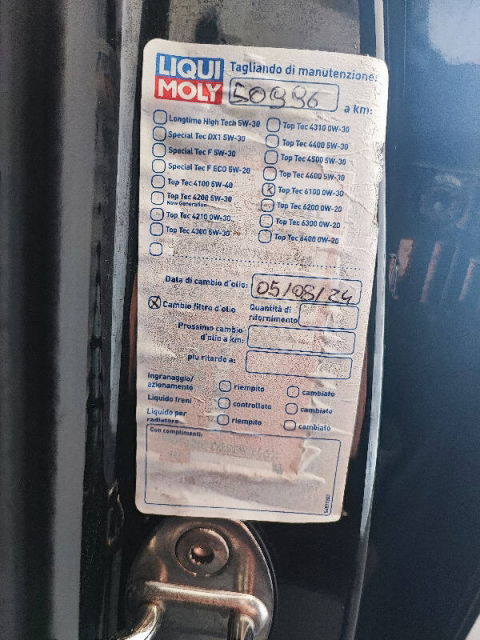 LIQUI MOLY
Tagliando di manutenzione:
50996 a km:
Longtime High Tech 5W-30
Special Tec DX1 5W-30
Special Tec F 5W-30
Special Tec F ECO 5W-20
Top Tec 4100 5W-40
Top Tec 4200 5W-30
New Generation
Top Tec 4210 0W-30
Top Tec 4300 5W-30
Top Tec 4310 0W-30
Top Tec 4400 5W-30
Top Tec 4500 5W-30
Top Tec 4600 5W-30
Top Tec 6100 0W-30
Top Tec 6200 0W-20
Top Tec 6300 0W-20
Top Tec 6400 0W-20
Data di cambio d'olio: 05/08/24
Cambio filtro d'olio
Quantità di
rifornimento:
Prossimo cambio
d'olio a km:
più ritardo a:
Ingranaggio/
azionamento riempito cambiato
Liquido freni controllato cambiato
Liquido per
radiatore riempito cambiato
Con complimenti: